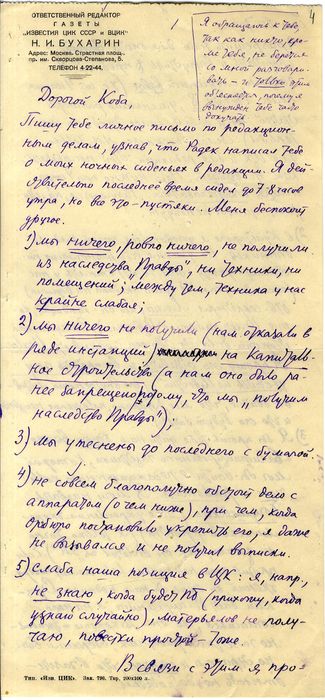 ОТВЕТСТВЕННЫЙ РЕДАКТОР
ГАЗЕТЫ
„ИЗВЕСТИЯ ЦИК СССР и ВЦИК"
Н. И. БУХАРИН
Адрес: Москва. Страстная площ.,
пр. им. Скворцова-Степанова, 5.
ТЕЛЕФОН 4-22-44.
1
4
Я обращаюсь к тебе,
так как никто, кро-
ме тебя, не берется
со мной разговари-
вать – и только этим
объясняется, почему я
вынужден тебе часто
докучать
Дорогой Коба,
Пишу тебе личное письмо по редакцион-
ным делам, узнав, что Радек написал тебе
о моих ночных сиденьях в редакции. Я дей-
ствительно последнее время сидел до 7-8 часов
утра, но все это – пустяки. Меня беспокоит
другое.
1) мы ничего, ровно ничего, не получили
из наследства „Правды", ни техники, ни
помещений; между тем, техника у нас
крайне слабая;
2) мы ничего не получили (нам отказали в
ряде инстанций) на капиталь-
ное строительство (а нам оно было ра-
нее запрещено потому, что мы „получим
наследство Правды");
3) мы утеснены до последнего с бумагой
4) не совсем благополучно обстоит дело с
аппаратом (о чем ниже), при чем, когда
Оргбюро постановило укрепить его, я даже
не вызывался и не получил выписки.
5) слаба наша позиция в ЦК: я, напр.,
не знаю, когда будет ПБ (прихожу, когда
узнаю случайно), матерьялов не полу-
чаю, повестки простой – тоже.
В связи с этим я про-
Тип. „Изв. ЦИК". Зак. 796. Тир. 200х100 л.